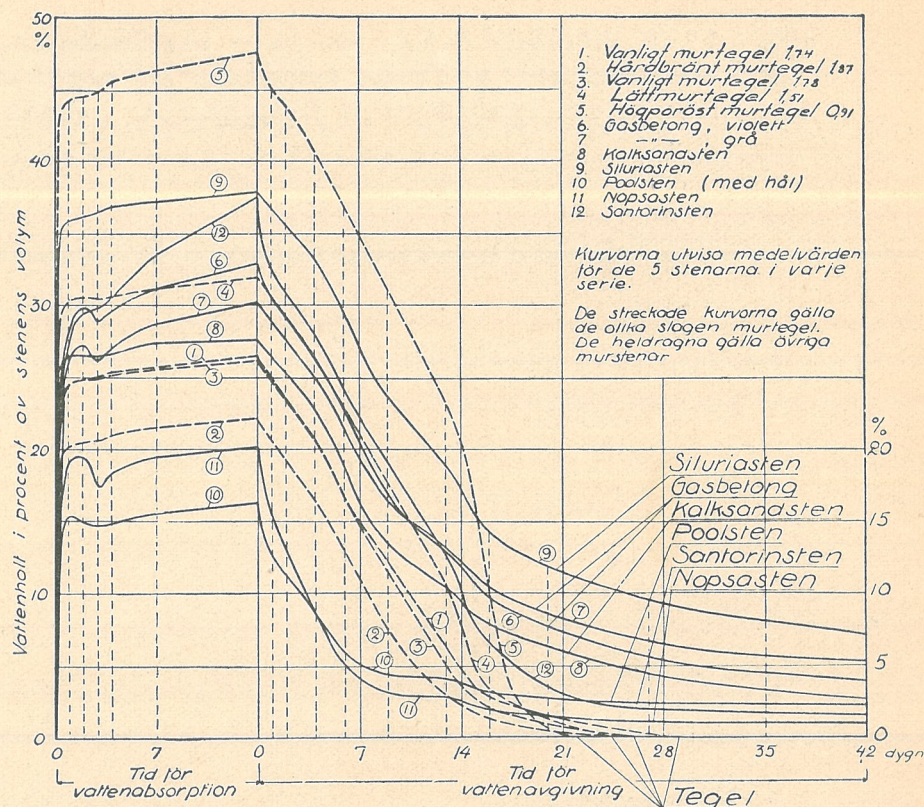 50
%
40
30
20
10
0
Vattenhalt i procent av stenens volym
1. Vanligt murtegel 1,74
2. Hårdbränt murtegel 1,87
3. Vanligt murtegel 1,78
4 Lättmurtegel 1,51
5. Högporöst murtegel 0,91
6. Gasbetong, violett
7 -"- , grå
8 Kalksandsten
9 Siluriasten
10 Poolsten (med hål)
11 Nopsasten
12 Santorinsten
Kurvorna utvisa medelvärden
för de 5 stenarna i varje
serie.
De streckade kurvorna gälla
de olika slagen murtegel.
De heldragna gälla övriga
murstenar
5
9
12
6
4
7
8
1
3
2
11
10
%
20
15
10
5
0
Siluriasten
Gasbetong
Kalksandsten
Poolsten
Santorinsten
Nopsasten
9
7
6
8
5
12
4
1
3
2
10
11
0 7 0 7 14 21 28 35 42 dygn
Tid för
vattenabsorption
Tid för
vattenavgivning
Tegel